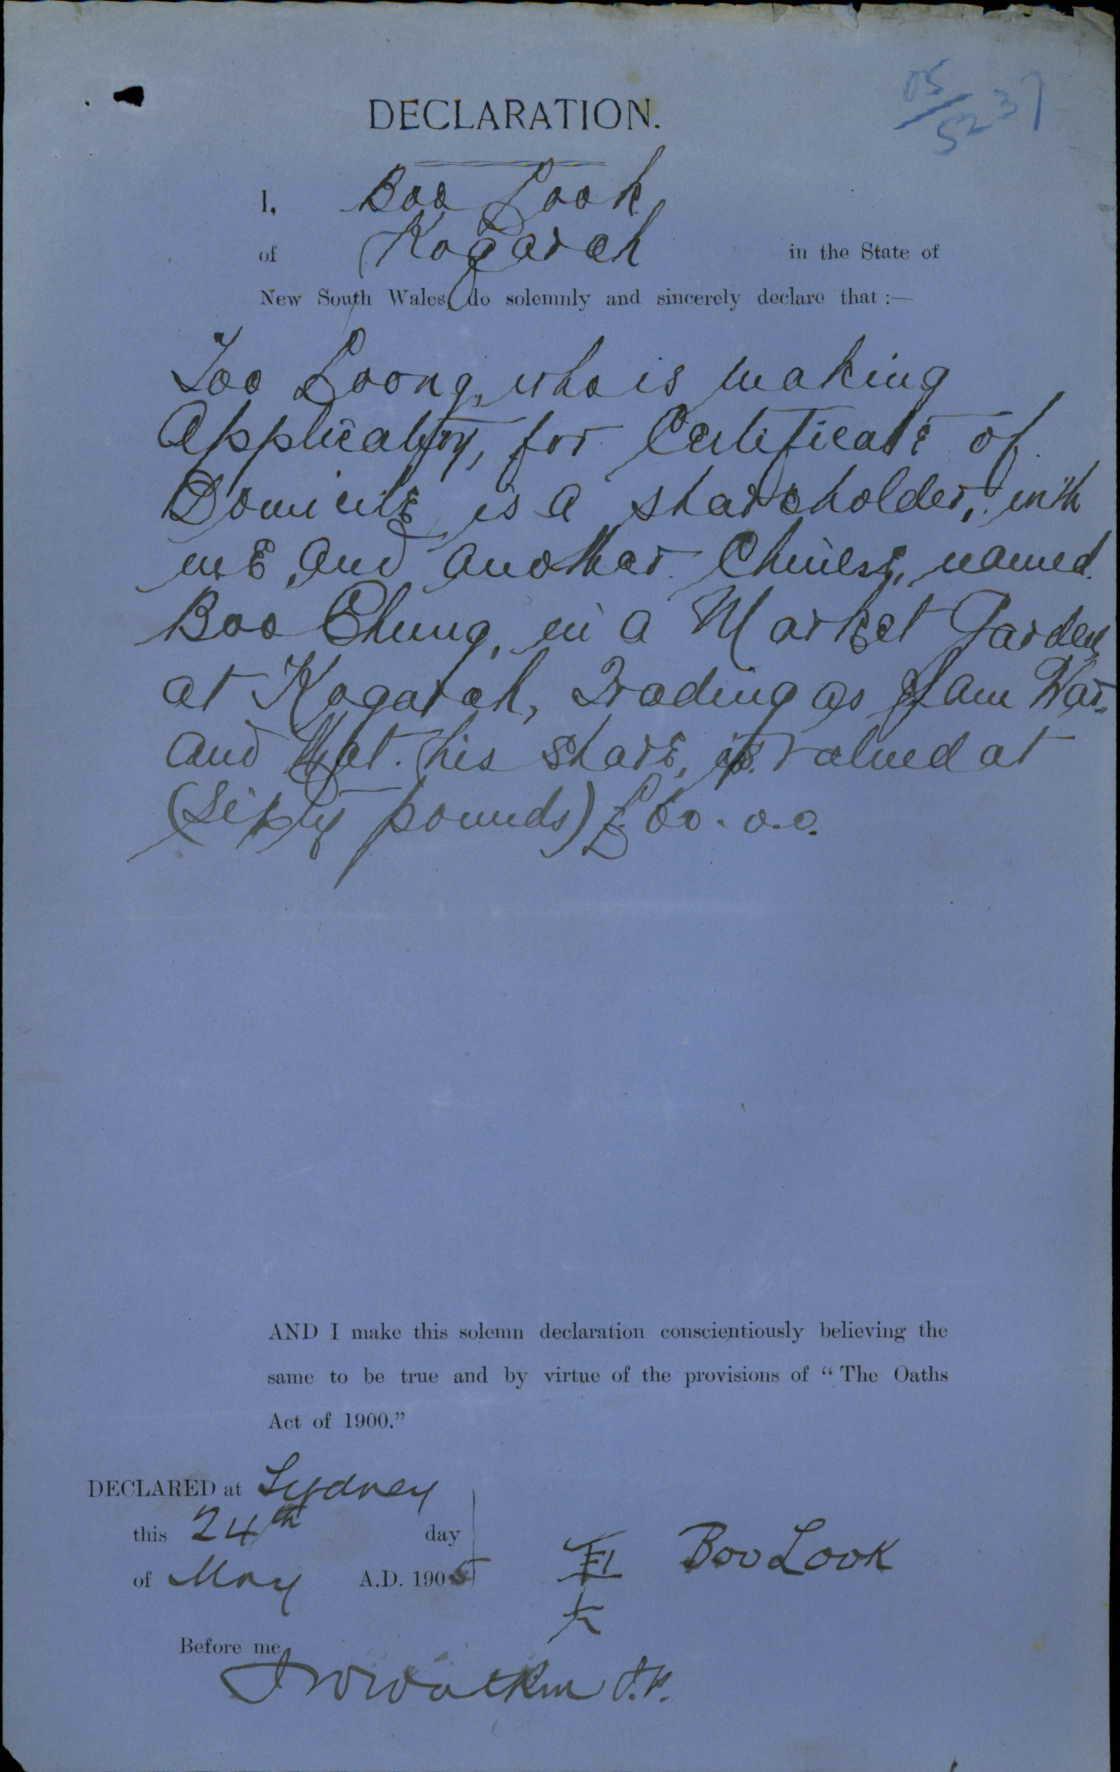 05/5237
DECLARATION.
I, Boo Look
of Kogarah in the State of
New South Wales do solemnly and sincerely declare that :—
Too Loong, who is making
Application, for Certificate of
Domicile is a shareholder, with
me, and another Chinese, named
Boo Chung, in a Market Garden
at Kogarah, Trading as Sam War,
and that his share, is valued at
(Sixty pounds) £60.0.0.
AND I make this solemn declaration conscientiously believing the
same to be true and by virtue of the provisions of “The Oaths
Act of 1900.”
DECLARED at Sydney
this 24th day
of May A.D. 1905
Boo Look
Before me
J.P.